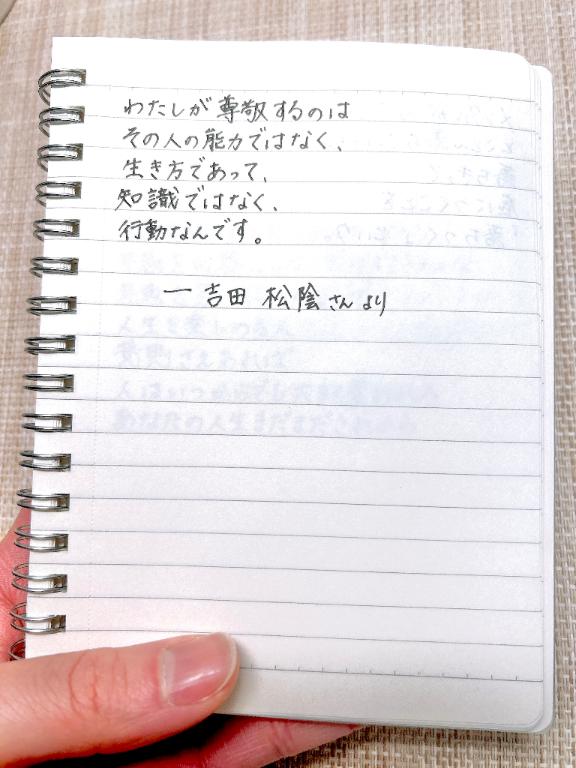 わたしが尊敬するのは
その人の能力ではなく、
生き方であって、
知識ではなく、
行動なんです。
ー 吉田 松陰さんより